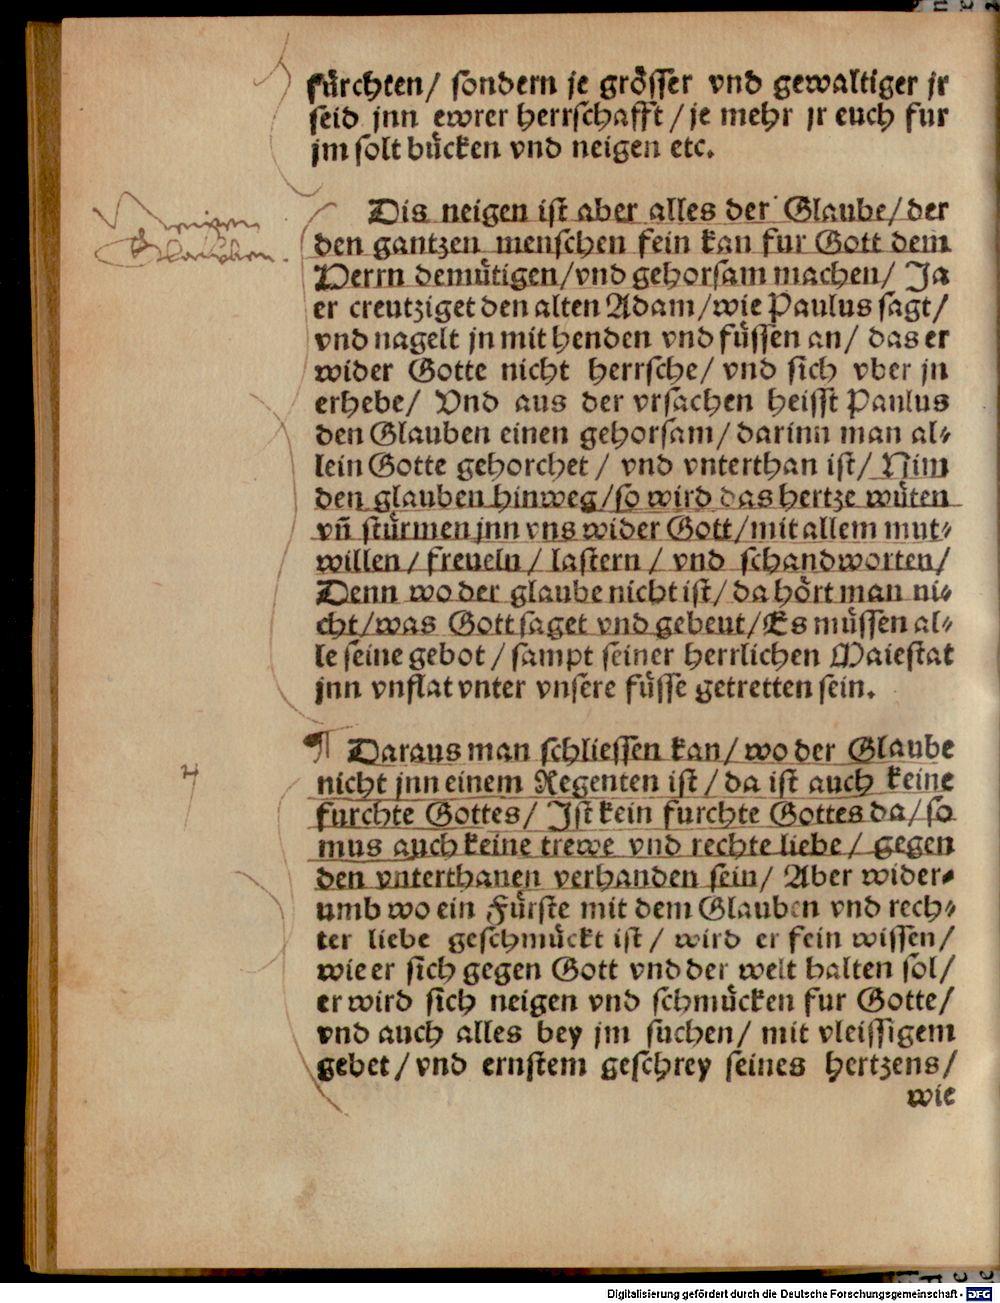 fürchten/ sondern je grösser vnd gewaltiger jr
seid jnn ewrer herrschafft/ je mehr jr euch fur
jm solt bücken vnd neigen etc.
Dis neigen ist aber alles der Glaube/ der
den gantzen menschen fein kan fur Gott dem
Herrn demütigen/ vnd gehorsam machen/ Ja
er creutziget den alten Adam/ wie Paulus sagt/
vnd nagelt jn mit henden vnd füssen an/ das er
wider Gotte nicht herrsche/ vnd sich vber jn
erhebe/ Vnd aus der vrsachen heisst Paulus
den Glauben einen gehorsam/ darinn man al⸗
lein Gotte gehorchet/ vnd vnterthan ist/ Nim
den glauben hinweg/ so wird das hertze wüten
vn̄ stürmen jnn vns wider Gott/ mit allem mut⸗
willen/ freueln/ lastern/ vnd schandworten/
Denn wo der glaube nicht ist/ da hört man ni⸗
cht/ was Gott saget vnd gebeut/ Es müssen al⸗
le seine gebot/ sampt seiner herrlichen Maiestat
jnn vnflat vnter vnsere füsse getretten sein.
¶ Daraus man schliessen kan/ wo der Glaube
nicht jnn einem Regenten ist/ da ist auch keine
furchte Gottes/ Ist kein furchte Gottes da/ so
mus auch keine trewe vnd rechte liebe/ gegen
den vnterthanen verhanden sein/ Aber wider⸗
umb wo ein Fürste mit dem Glauben vnd rech⸗
ter liebe geschmückt ist/ wird er fein wissen/
wie er sich gegen Gott vnd der welt halten sol/
er wird sich neigen vnd schmücken fur Gotte/
vnd auch alles bey jm suchen/ mit vleissigem
gebet/ vnd ernstem geschrey seines hertzens/
wie
Digitalisierung gefördert durch die Deutsche Forschungsgemeinschaft - DFG